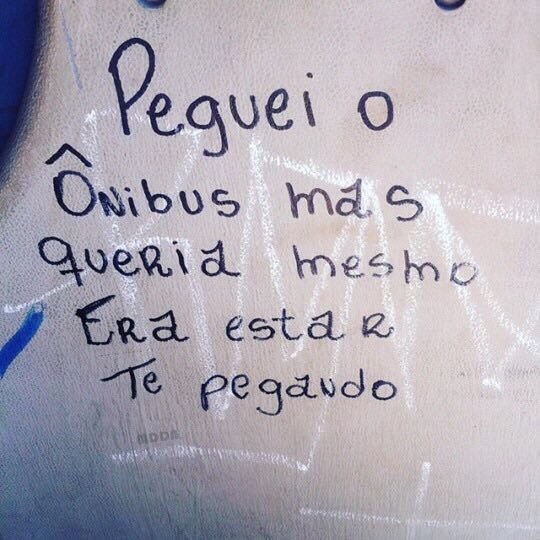 Peguei o
Ônibus mas
queria mesmo
Era estar
Te pegando